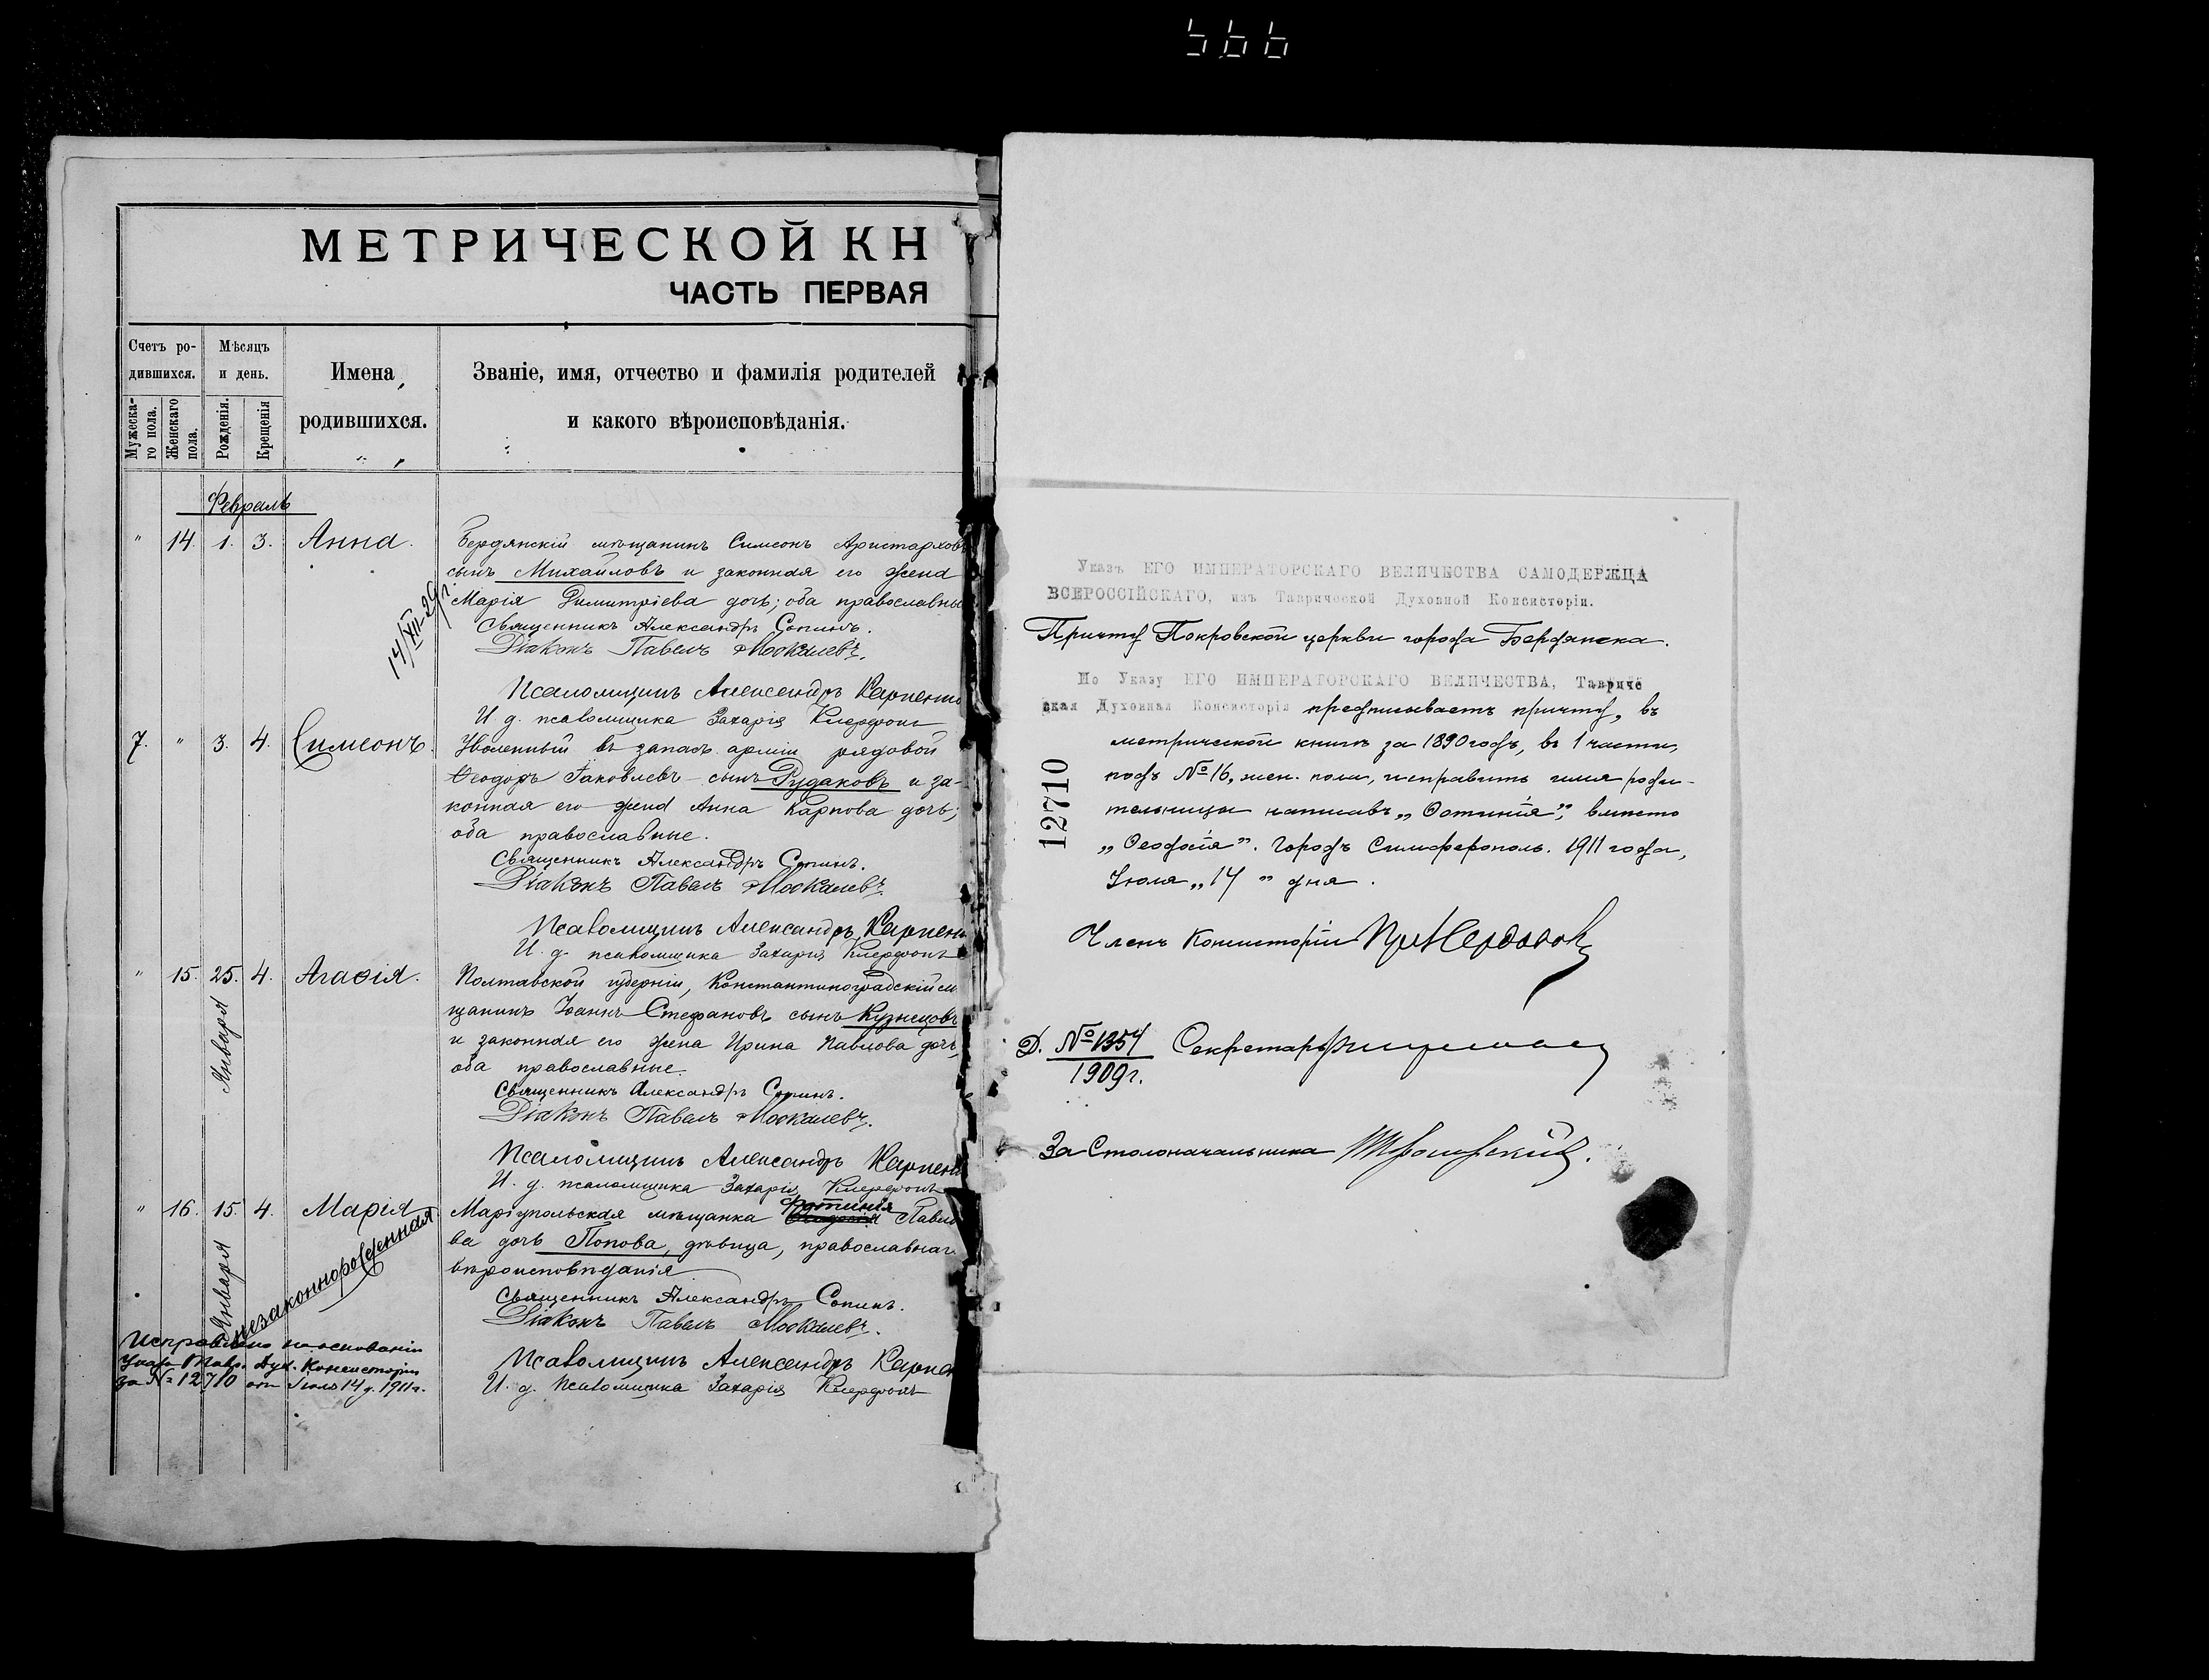 566
МЕТРИЧЕСКОЙ КН
ЧАСТЬ ПЕРВАЯ
Счетъ ро-
дившихся.
Мѣсяцъ
и день.
Имена
родившихся.
Званіе, имя, отчество и фамилія родителей
и какого вѣроисповѣданія.
Мужеска-
го пола.
Женскаго
пола.
Рожденія.
Крещенія
Февраль
" 14. 1. 3. Анна.
Бердянскій мѣщанинъ Симеонъ Аристархов
сынъ Михайловъ и законная его жена
Марія Димитріева дочь; оба православны
Священникъ Александръ Сопинъ.
Діаконъ Павелъ Москалевъ.
14/XII-29 г.
Псаломщикъ Александръ Карпенко
И. д. псаломщика Захарія
7. " 3. 4. Симеонъ.
Уволенный въ запасъ арміи рядовой
Ѳеодоръ Іаковлевъ сынъ Рудаковъ и за-
конная его жена Анна Карпова дочь;
оба православные.
Священникъ Александръ Сопинъ.
Діаконъ Павелъ Москалевъ
Псаломщикъ Александръ Карпен
И. д. псаломщика Захарія
" 15. 25. 4. Агаѳія.
Января
Полтавской губерніи, Константиноградскій м
щанинъ Іоаннъ Стефановъ сынъ Кузнецовъ
и законная его жена Ирина Павлова дочь,
оба православные.
Священникъ Александръ Сопинъ.
Діаконъ Павелъ Москалевъ.
Псаломщикъ Александръ Карпен
И. д. псаломщика Захарія
" 16. 15. 4. Марія
Января
незаконнорожденная
Фотинія
Маріупольская мѣщанка Ѳеодосія Павло
ва дочь Попова, дѣвица, православнаг
вѣроисповѣданія
Священникъ Александръ Сопинъ.
Діаконъ Павелъ Москалевъ.
Псаломщикъ Александръ Карпен
И. д. псаломщика Захарія
Исправлено на основаніи
Указа Тавр. Дух. Консисторіи
за № 12710 отъ Іюля 14 д. 1911 г.
Указъ ЕГО ИМПЕРАТОРСКАГО ВЕЛИЧЕСТВА САМОДЕРЖЦА
ВСЕРОССІЙСКАГО, изъ Таврической Духовной Консисторіи.
Причту Покровской церкви города Бердянска.
По Указу ЕГО ИМПЕРАТОРСКАГО ВЕЛИЧЕСТВА, Тавриче
ская Духовная Консисторія предписываетъ причту, въ
метрической книгѣ за 1890 годъ, въ 1 части,
подъ № 16, жен. пола, исправить имя роди-
тельницы написавъ „Фотинія", вмѣсто
„Ѳеодосія". Городъ Симферополь. 1911 года,
Іюля „14" дня.
12710
Членъ Консисторіи
Д. № 1354
1909 г.
Секретарь
За Столоначальника